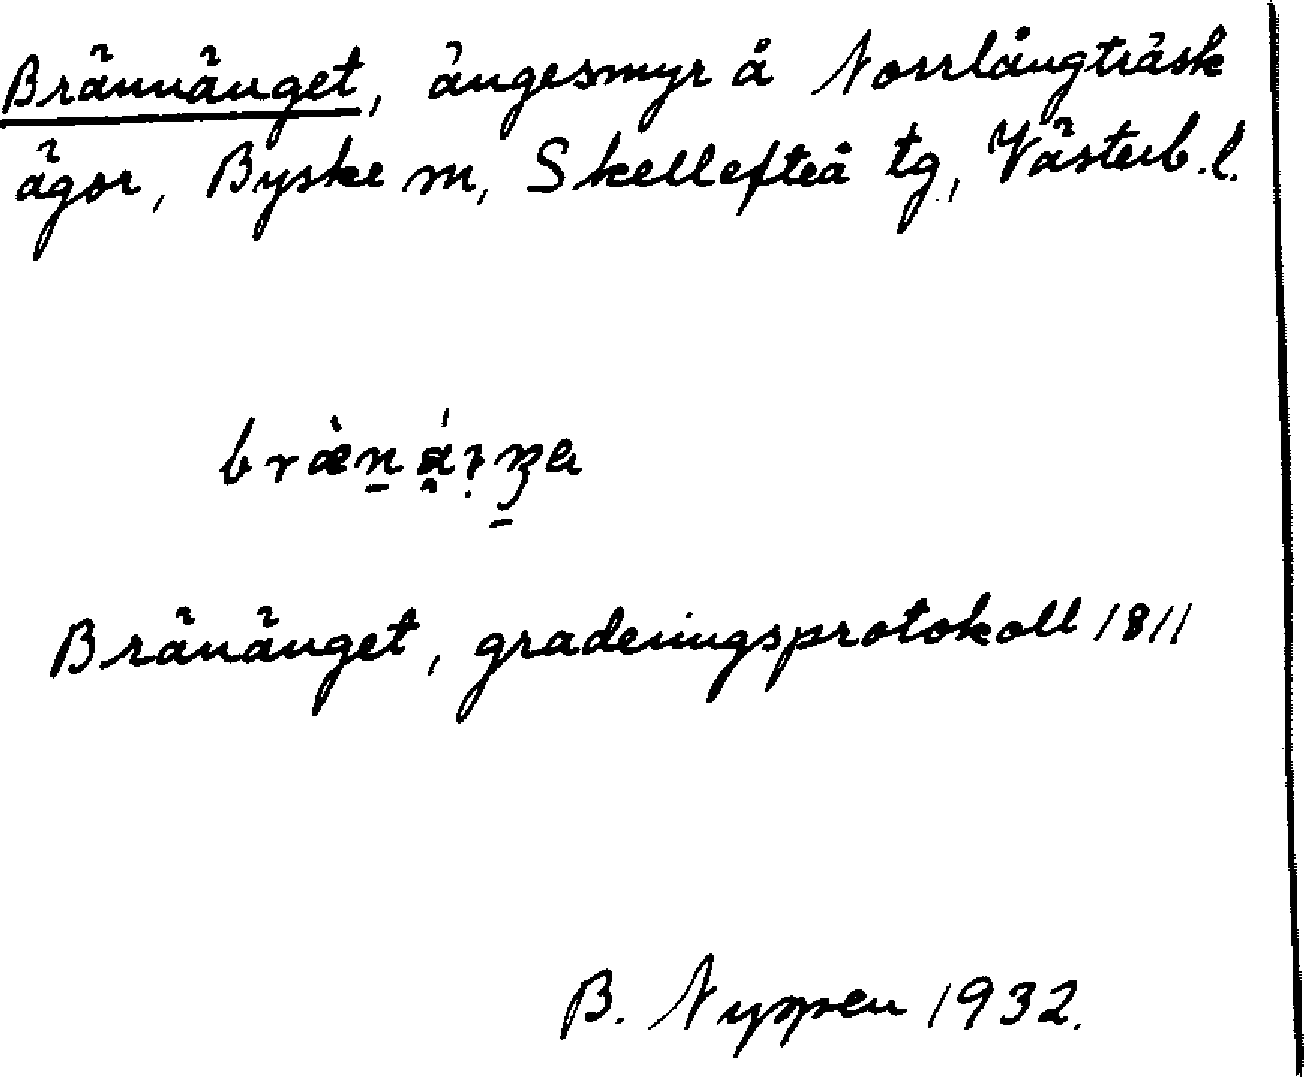 Brännänget, ängesmyr å Norrlångträsk
ägor, Byske m, Skellefteå tg, Västerb. l.
Bränänget, graderingsprotokoll 1811
B. Nyppen 1932.